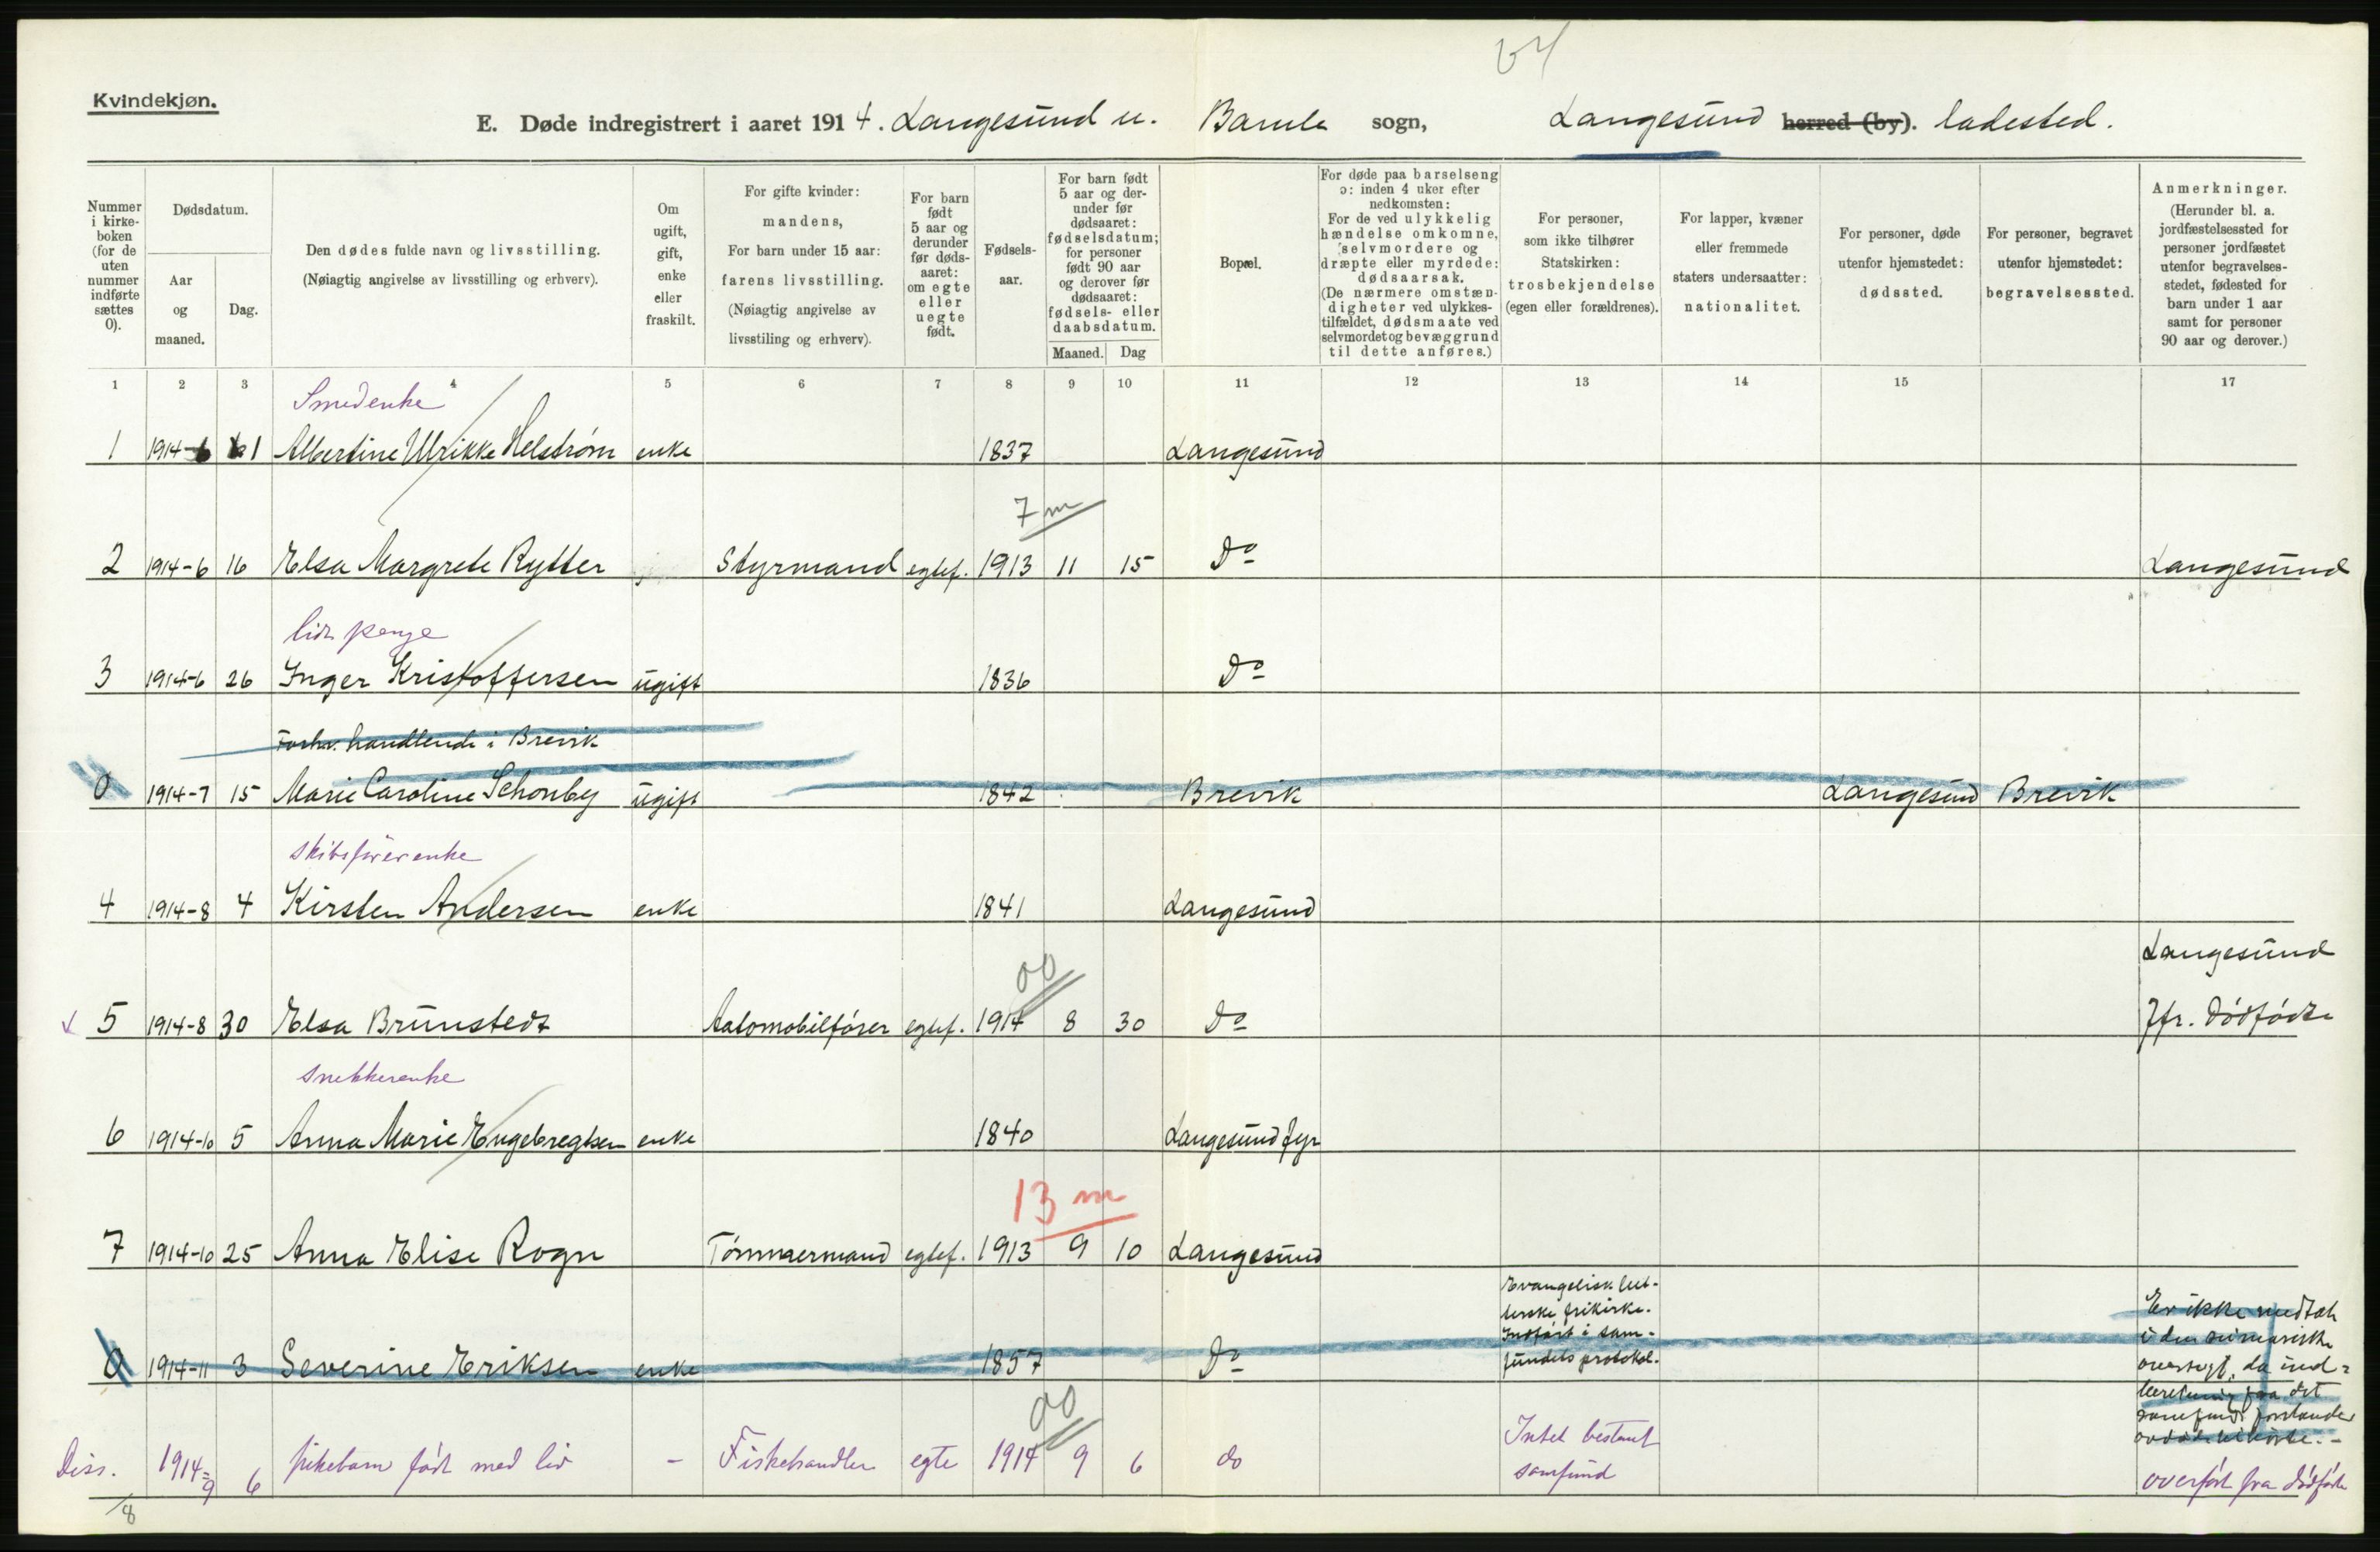 64
Kvindekjøn.
E. Døde indregistrert i aaret 1914. Langesund u. Bamle sogn, Langesund herred (by). ladested.
Nummer i kirke-boken (for de uten nummer indførte sættes 0).
Dødsdatum.
Aar og maaned.
Dag.
Den dødes fulde navn og livsstilling.
(Nøiagtig angivelse av livsstilling og erhverv).
Om ugift, gift, enke eller fraskilt.
For gifte kvinder: mandens,
For barn under 15 aar: farens livsstilling.
(Nøiagtig angivelse av livsstiling og erhverv).
For barn født 5 aar og derunder før døds-aaret: om egte eller uegte født.
Fødsels-aar.
For barn født 5 aar og der-under før dødsaaret: fødselsdatum; for personer født 90 aar og derover før dødsaaret: fødsels- eller daabsdatum.
Maaned. Dag
Bopæl.
For døde paa barselseng ɔ: inden 4 uker efter nedkomsten:
For de ved ulykkelig hændelse omkomne, selvmordere og dræpte eller myrdede: dødsaarsak.
(De nærmere omstæn-digheter ved ulykkes-tilfældet, dødsmaate ved selvmordet og bevæggrund til dette anføres.)
For personer, som ikke tilhører Statskirken: trosbekjendelse (egen eller forældrenes).
For lapper, kvæner eller fremmede staters undersaatter: nationalitet.
For personer, døde utenfor hjemstedet: dødssted.
For personer, begravet utenfor hjemstedet: begravelsessted.
Anmerkninger.
(Herunder bl. a. jordfæstelsessted for personer jordfæstet utenfor begravelses-stedet, fødested for barn under 1 aar samt for personer 90 aar og derover.)
1 2 3 4 5 6 7 8 9 10 11 12 13 14 15 17
Smedenke
1 1914-6 1 Albertine Ulrikke Helstrøm enke 1837 Langesund
7 m
2 1914-6 16 Elsa Margrete Rytter Styrmand egtef. 1913 11 15 Do Langesund
lidt penge
3 1914-6 26 Inger Kristoffersen ugift 1836 Do
Forhv. handlende i Brevik
0 1914-7 15 Marie Caroline Schonby ugift 1842 Brevik Langesund Brevik
skibsførerenke
4 1914-8 4 Kirsten Andersen enke 1841 Langesund
00 Langesund
5 1914-8 30 Elsa Brunstedt Automobilfører egtef. 1914 8 30 Do Jfr. dødfødte
snekkerenke
6 1914-10 5 Anna Marie Engebregtsen enke 1840 Langesund fyr
13 m
7 1914-10 25 Anna Elise Rogn Tømmermand egtef. 1913 9 10 Langesund
Evangelisk lut-
herske frikirke.
Indført i sam-
fundets protokol.
0 1914-11 3 Severine Eriksen enke 1857 Do
Er ikke medtat
i den summariske
oversigt, da ind-
beretning fra det
samfunds forstander
00
Diss. 1914-9 6 pikebarn født med liv - Fiskehandler egte 1914 9 6 do
Intet bestemt
samfund
overført fra dødfødte
/8